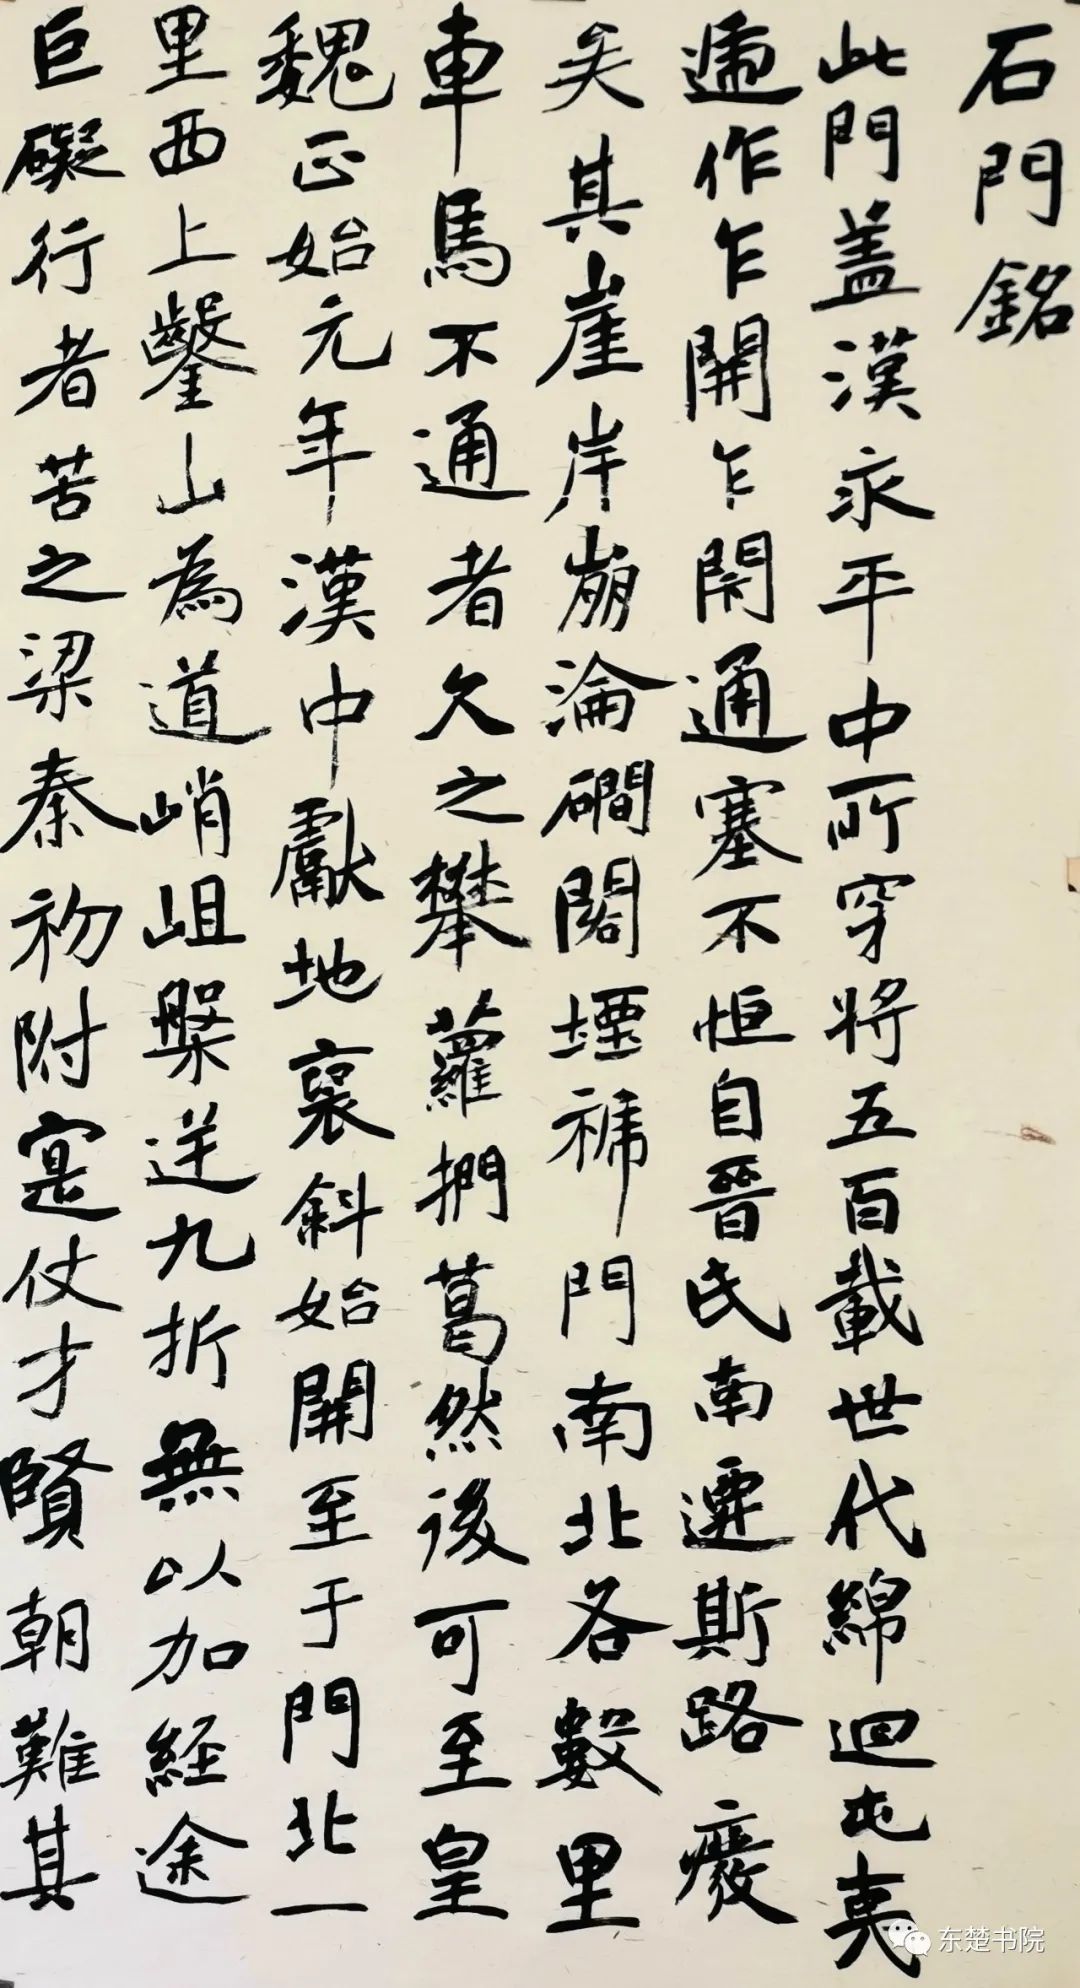 石門銘
此門盖漢永平中所穿將五百載世代綿迴屯夷
遞作乍開乍閇通塞不恒自晉氏南遷斯路廢
矣其崖岸崩淪礀閣堙褫門南北各數里
車馬不通者久之攀蘿捫葛然後可至皇
魏正始元年漢中獻地褒斜始開至于門北一
里西上鑿山為道峭岨槃迂九折無以加経途
巨礙行者苦之梁秦初附寔仗才賢朝難其
东楚书院